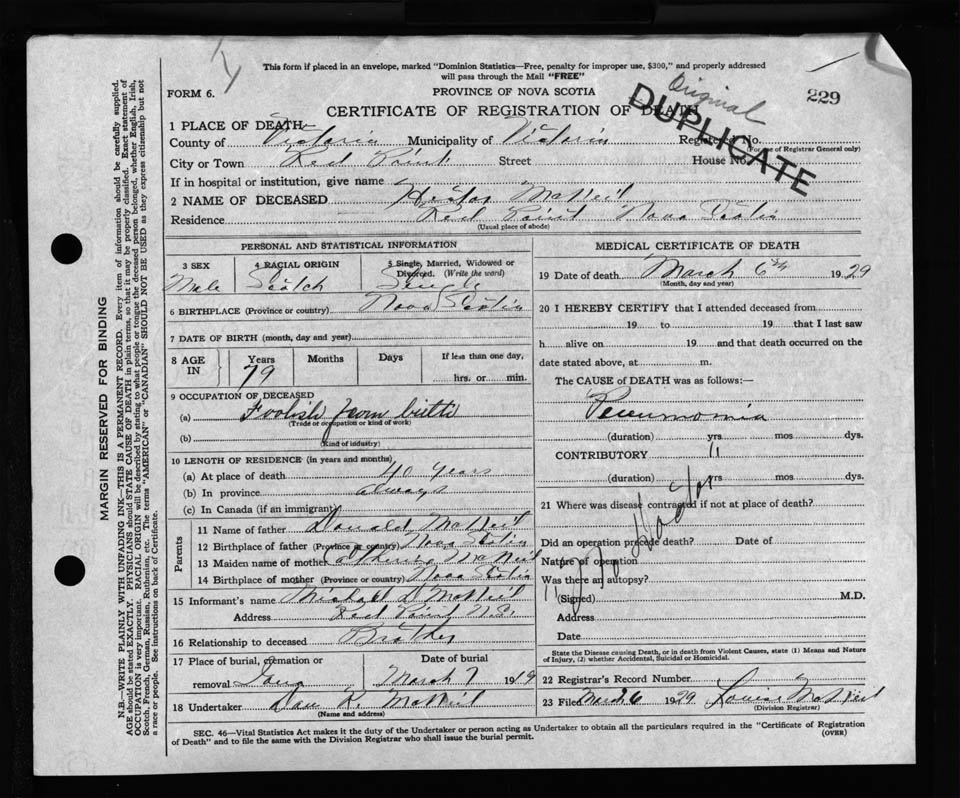 This form if placed in an envelope, marked "Dominion Statistics—Free, penalty for improper use, $300," and properly addressed
will pass through the Mail "FREE"
FORM 6.
PROVINCE OF NOVA SCOTIA
Original
229
CERTIFICATE OF REGISTRATION OF DEATH
DUPLICATE
1 PLACE OF DEATH—
County of Victoria Municipality of Victoria Registered No.
(For use of Registrar General only)
City or Town Red Point Street House No.
If in hospital or institution, give name
2 NAME OF DECEASED Hector McNeil
Residence Red Point Nova Scotia
(Usual place of abode)
PERSONAL AND STATISTICAL INFORMATION
3 SEX 4 RACIAL ORIGIN 5 Single, Married, Widowed or
Divorced. (Write the word)
Male Scotch Single
6 BIRTHPLACE (Province or country) Nova Scotia
7 DATE OF BIRTH (month, day and year)
8 AGE IN Years Months Days If less than one day,
79 hrs. or min.
9 OCCUPATION OF DECEASED
(a) Foolish from birth
(Trade or occupation or kind of work)
(b)
(Kind of industry)
10 LENGTH OF RESIDENCE (in years and months)
(a) At place of death 40 years
(b) In province always
(c) In Canada (if an immigrant)
Parents
11 Name of father Donald McNeil
12 Birthplace of father (Province or country) Nova Scotia
13 Maiden name of mother Catherine McNeil
14 Birthplace of mother (Province or country) Nova Scotia
15 Informant's name Michael D McNeil
Address Red Point N.S.
16 Relationship to deceased Brother
17 Place of burial, cremation or Date of burial
removal Iona March 7 1919
18 Undertaker Dan R. McNeil
(Name and address)
MEDICAL CERTIFICATE OF DEATH
19 Date of death March 6th 1929
(Month, day and year)
20 I HEREBY CERTIFY that I attended deceased from
19 to 19 that I last saw
h alive on 19 and that death occurred on the
date stated above, at m.
The CAUSE OF DEATH was as follows:—
Pneumonia
(duration) yrs. mos dys.
CONTRIBUTORY
(duration) yrs mos. dys.
21 Where was disease contracted if not at place of death?
Did an operation precede death? Date of
Nature of operation
Was there an autopsy?
No Doctor
(Signed) M.D.
Address
Date
State the Disease causing Death, or in death from Violent Causes, state (1) Means and Nature
of Injury, (2) whether Accidental, Suicidal or Homicidal.
22 Registrar's Record Number
23 Filed Mar 26 1929 Louise McNeil
(Division Registrar)
SEC. 46—Vital Statistics Act makes it the duty of the Undertaker or person acting as Undertaker to obtain all the particulars required in the "Certificate of Registration
of Death" and to file the same with the Division Registrar who shall issue the burial permit.
(OVER)
MARGIN RESERVED FOR BINDING
N.B.—WRITE PLAINLY WITH UNFADING INK—THIS IS A PERMANENT RECORD. Every item of information should be carefully supplied.
AGE should be stated EXACTLY. PHYSICIANS should STATE CAUSE OF DEATH in plain terms, so that it may be properly classified. Exact statement of
OCCUPATION is very important. RACIAL ORIGIN will be described by stating to what people or tongue the deceased person belonged, whether English, Irish,
Scotch, French, German, Russian, Ruthenian, etc. The terms "AMERICAN" or "CANADIAN" SHOULD NOT BE USED as they express citizenship but not
a race or people. See instructions on back of Certificate.